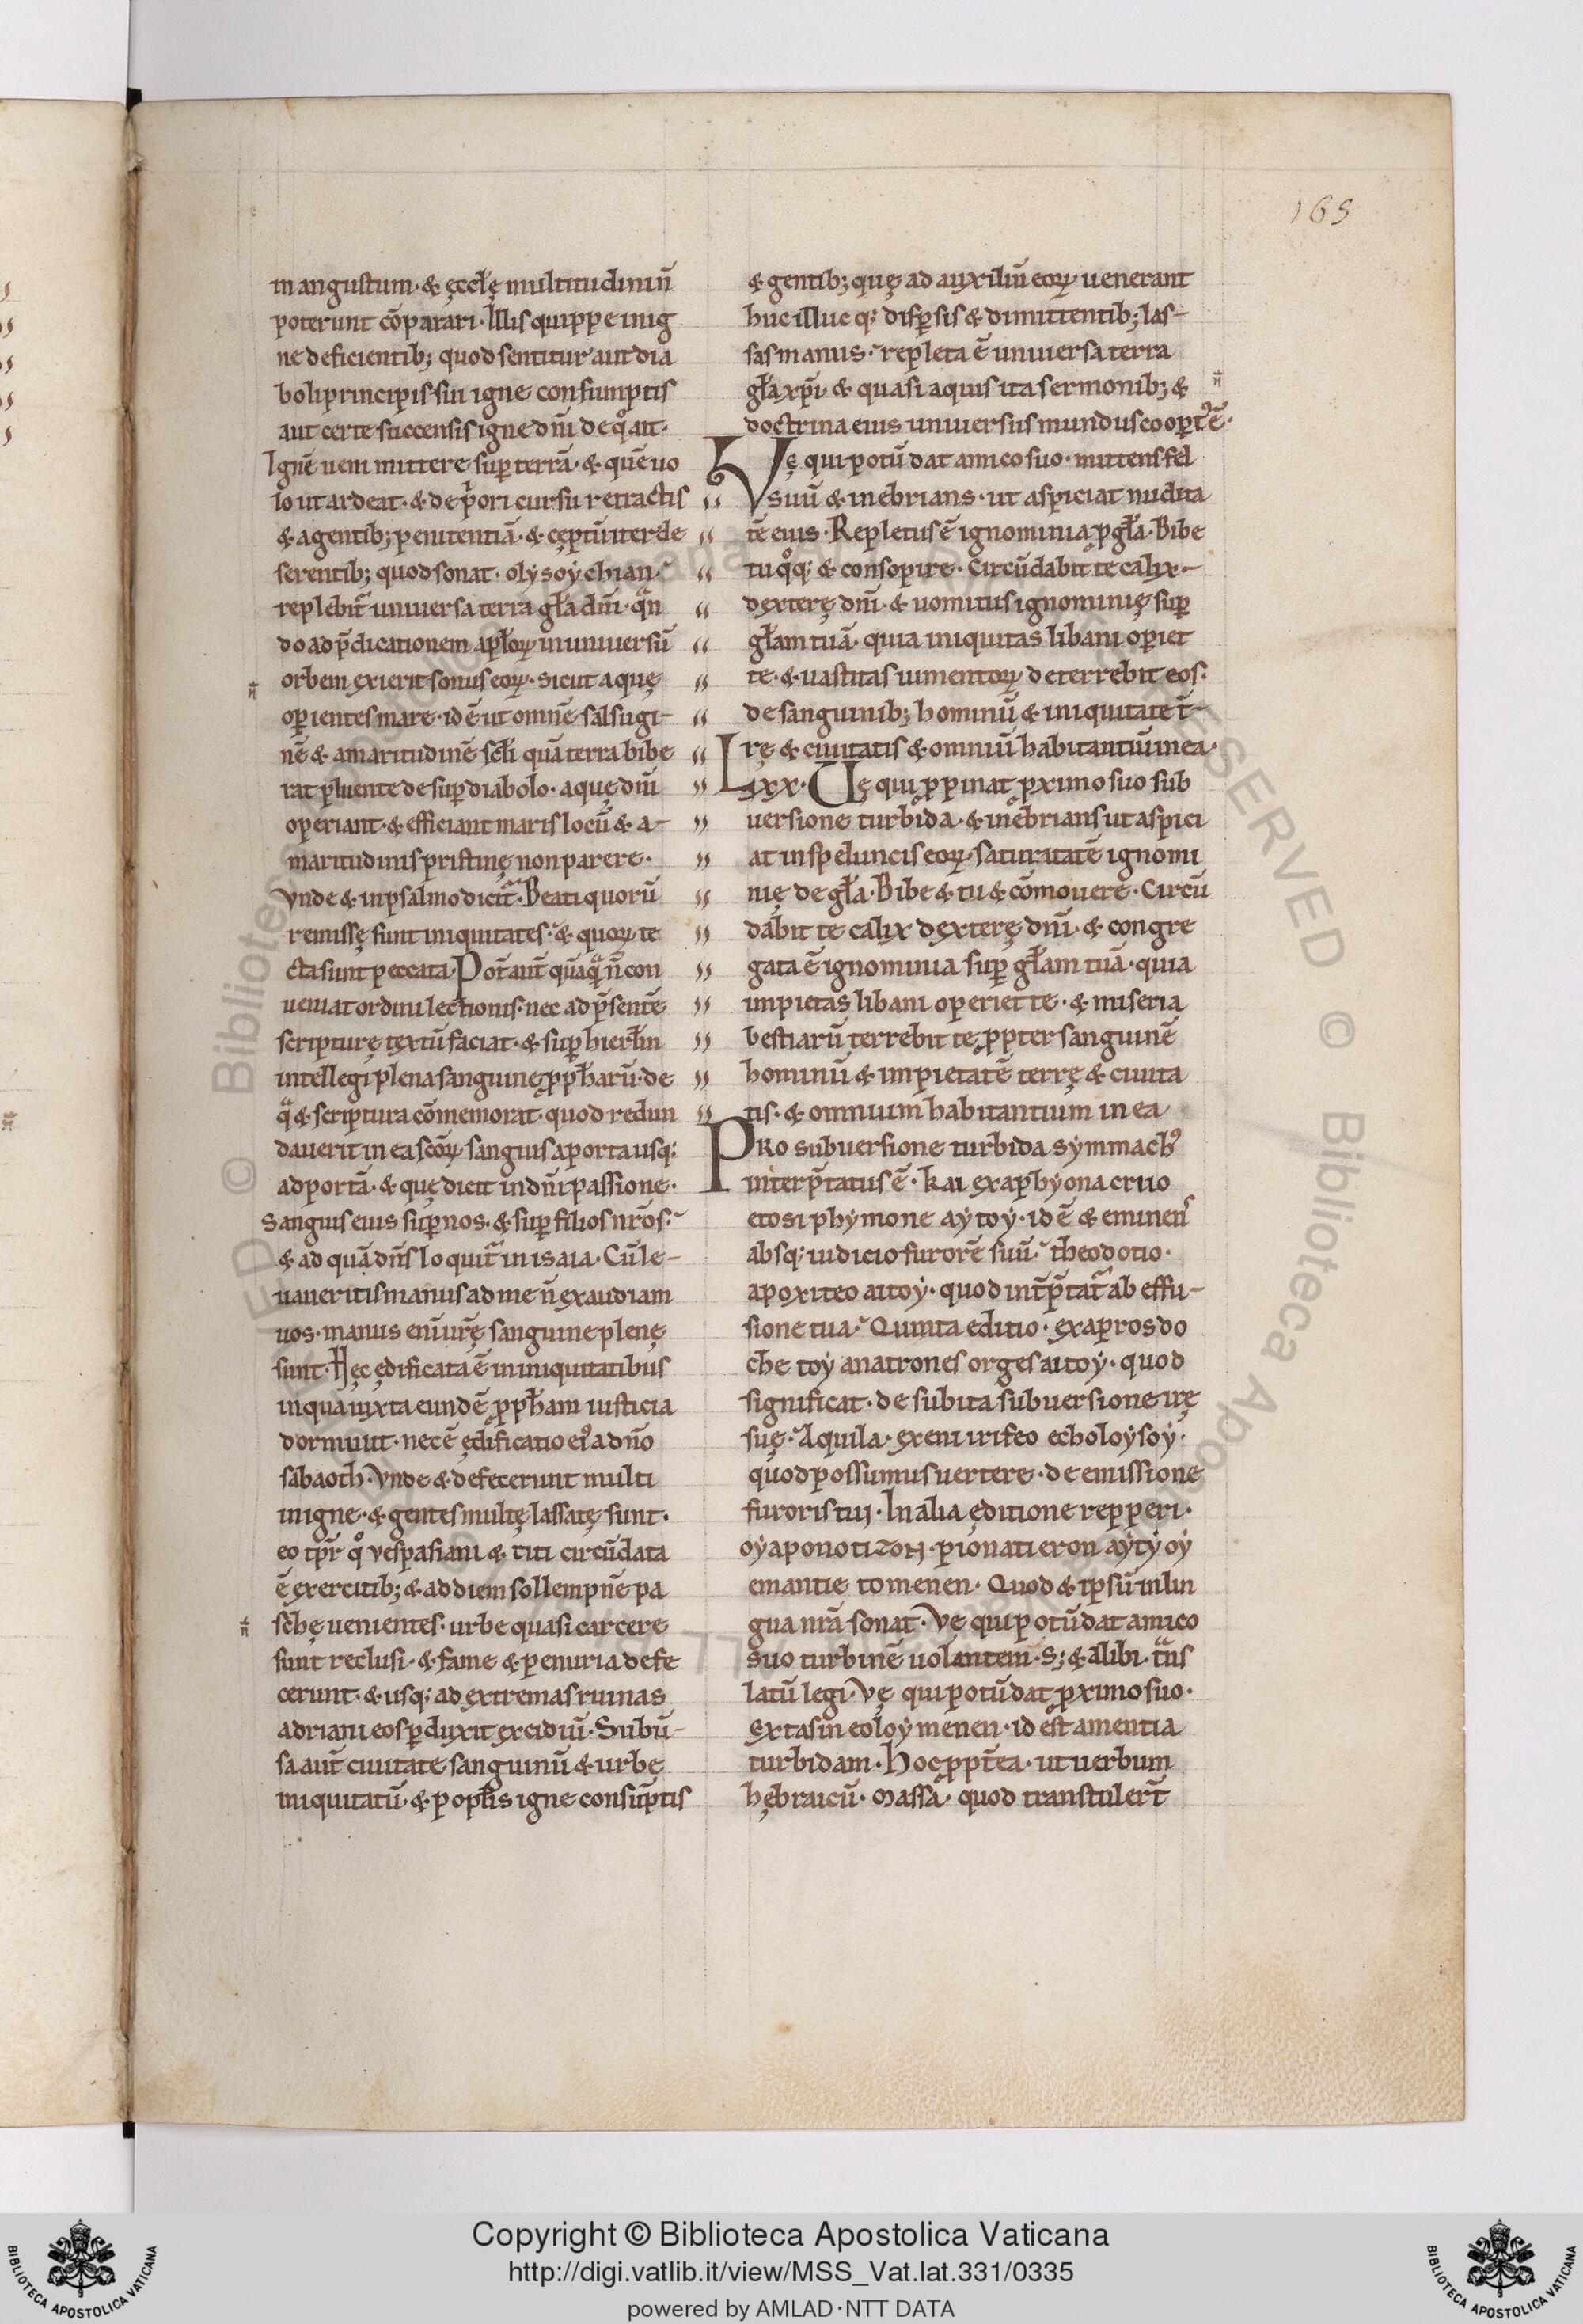 165
in angustum · & ęccłę multitudini n̄
poterunt cōparari · Illis quippe in ig
ne deficientib; quod sentitur aut dia
boli principis sui igne consumptis
aut certe succensis igne dñi de qͦ ait ·
Ignē ueni mittere sup̱ terrā · & quē uo
lo ut ardeat · & de p̄ori cursu retractis
& agentib; penitentiā · & cęptū iter de
serentib; quod sonat · olẏsoẏchian ·
replebit᷑ uniuersa terra gła dñi · qͣn
do ad p̄dicationem apłoꝝ in uniuersū
orbem exierit sonus eoꝝ · Sicut aquę
op̱ientes mare · id ē ut omnē salsugi-
nē & amaritudinē scłi quā terra bibe
rat p̱luente desup̱ diabolo · aquę dñi
operiant · & efficiant maris locū & a-
maritudinis pristinę non parere ·
Vnde & in psalmo dicit᷑ · Beati quorū
remissę sunt iniquitates · & quoꝝ te
cta sunt peccata · Pot̄ aut̄ quāqͣ n̄ con
ueniat ordini lectionis · nec ad p̄sentē
scripturę textū faciat · & sup̱ hierłm
intellegi plena sanguine ꝓpħarū · de
qͣ & scriptura cōmemorat · quod redun
dauerit in ea scōꝝ sanguis a porta usq;
ad portā · & quę dicit in dñi passione ·
Sanguis eius sup̱ nos · & sup̱ filios nr̄os ·
& ad quā dñs loquit᷑ in isaia · Cū le-
uaueritis manus ad me n̄ exaudiam
uos · manus enī ur̄ę sanguine plenę
sunt · Hęc ędificata ē in iniquitatibus
in qua iuxta eundē ꝓpħam iusticia
dormiuit · nec ē ędificatio ei᷒ a dño
sabaoth · Vnde & defecerunt multi
in igne · & gentes multę lassatę sunt ·
eo tp̄r qͦ vespasiani & titi circūdata
ē exercitib; & ad diem sollempnē pa
schę uenientes · urbe quasi carcere
sunt reclusi · & fame & penuria defe
cerunt · & usq; ad extremas ruinas
adriani eos p̱duxit excidiū · Subū-
sa aut̄ ciuitate sanguinū & urbe
iniquitatū · & popłis igne consūptis
& gentib; quę ad auxiliū eoꝝ uenerant
huc illuc q; disp̱sis & dimittentib; las-
sas manus · repleta ē uniuersa terra
gła xp̄i · & quasi aquis ita sermonib; &
doctrina eius uniuersus mundus coop̱t᷒ ē ·
Vę qui potū dat amico suo · mittens fel
suū & inebrians · ut aspiciat nudita
tē eius · Repletus ē ignominia ꝓ gła · Bibe
tu qͦq; & consopire · Circūdabit te calix -
dexterę dñi · & uomitus ignominię sup̱
głam tuā · quia iniquitas libani operiet
te · & uastitas iumentoꝝ deterrebit eos ·
de sanguinib; hominū & iniquitate t̄-
rę & ciuitatis & omniū habitantiū in ea ·
Lxx · Vę qui ꝓpinat ꝓximo suo sub
uersione turbida · & inebrians ut aspici
at in speluncis eoꝝ · saturitatē ignomi
nię de gła · Bibe & tu & cōmouere · Circū
dabit te calix dexterę dñi · & congre
gata ē ignominia sup̱ głam tuā · quia
impietas libani operiet te · & miseria
bestiarū terrebit te ꝓpter sanguinē
hominū & impietatē terrę & ciuita
tis · & omnium habitantium in ea
Pro subuersione turbida sẏmmach᷒
interp̄tatus ē · kai exaphẏona criio
etos i phẏmone aẏtoẏ · id ē & eminens
absq; iudicio furorē suū · theodotio ·
apoxiteo aitoẏ · quod int̄p̄tat᷑ ab effu-
sione tua · Quinta editio · exaprosdo
che toẏ anatrones orges aitoẏ · quod
significat · de subita subuersione irę
suę · Aquila · exeni irifeo echoloẏsoẏ ·
quod possumus uertere · de emissione
furoris tui · In alia ęditione repperi ·
emantie tomenen · Quod & ipsū in lin
gua nr̄a sonat · Vę qui potū dat amico
suo turbinē uolantem · S; & alibi · tͣns
latū legi · Vę qui potū dat ꝓximo suo ·
Extasin eoloẏmenen · id est amentia
turbidam · Hoc ꝓpt̄ea · ut uerbum
hębraicū · Massa · quod transtulert̄
Copyright © Biblioteca Apostolica Vaticana
http://digi.vatlib.it/view/MSS_Vat.lat.331/0335
powered by AMLAD·NTT DATA
BIBLIOTECA APOSTOLICA VATICANA
BIBLIOTECA APOSTOLICA VATICANA